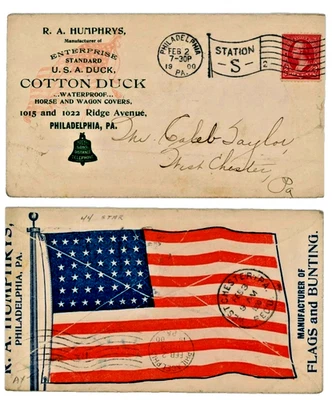 R. A. HUMPHRYS,
Manufacturer of
ENTERPRISE
STANDARD
U.S.A. DUCK,
COTTON DUCK
...WATERPROOF...
HORSE AND WAGON COVERS,
1015 and 1022 Ridge Avenue,
PHILADELPHIA, PA.
PHILADELPHIA
FEB 2
7-30P
19 00
PA.
STATION
-S-
2
Mr. Caleb Taylor,
West Chester,
Pa
44 STAR
R. A. HUMPHRYS,
PHILADELPHIA, PA.
WEST CHESTER, PA.
REC'D.
MANUFACTURER OF
FLAGS and BUNTING.